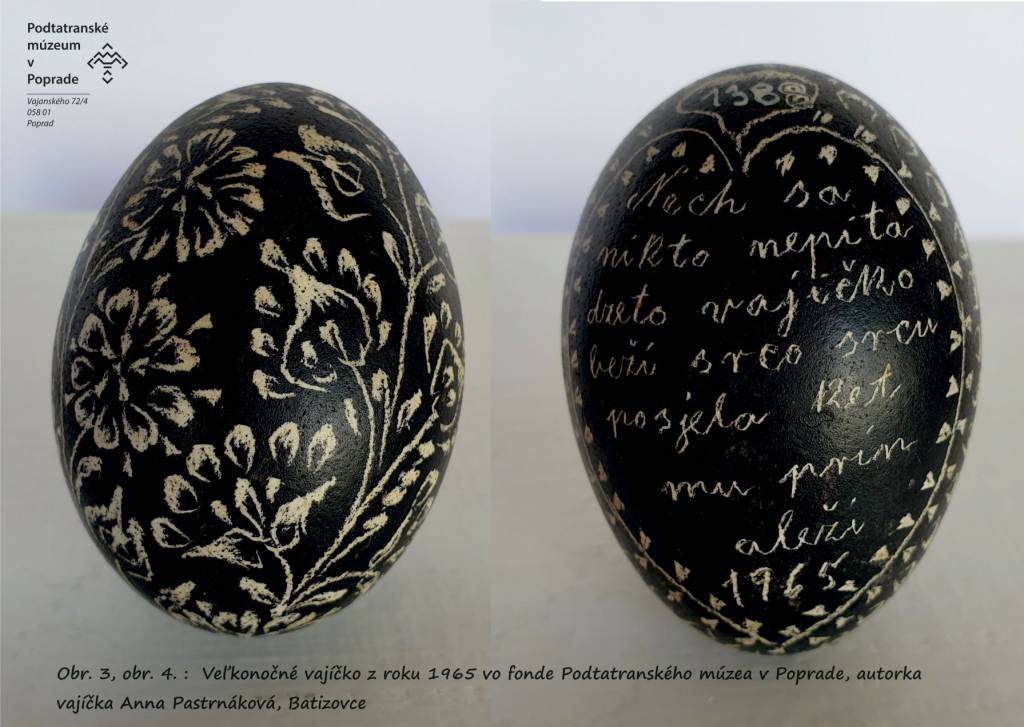 Podtatranské
múzeum
v
Poprade
Vajanského 72/4
058 01
Poprad
138@
Nech sa
nikto nepíta
dzeto vajíčko
beží srco srcu
posjela ket
mu prin
aleží
1965
Obr. 3, obr. 4. : Veľkonočné vajíčko z roku 1965 vo fonde Podtatranského múzea v Poprade, autorka
vajíčka Anna Pastrnáková, Batizovce